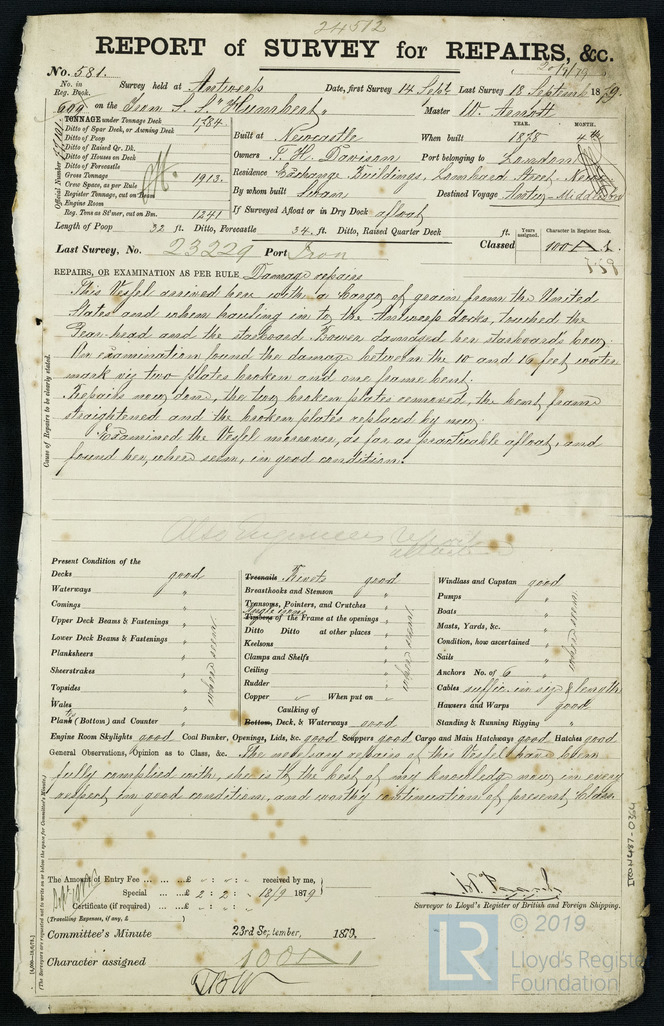 24512
REPORT of SURVEY for REPAIRS, &c.
No. 581.
No. in Reg. Book. Survey held at Antwerp Date, first Survey 14 Sept Last Survey 18 September 1879.
609 on the Iron S. S. "Humbert" Master W. Arnott
TONNAGE under Tonnage Deck 1784
Ditto of Spar Deck, or Awning Deck
Ditto of Poop
Ditto of Raised Qr. Dk.
Ditto of Houses on Deck
Ditto of Forecastle
Gross Tonnage 1913
Crew Space, as per Rule
Register Tonnage, cut on Beam
Engine Room
Reg. Tons as St'mer, cut on Bm. 1241
Built at Newcastle When built YEAR. 1878 MONTH. 4th
Owners F. H. Davison Port belonging to London
Residence Exchange Buildings, Lombard Street
By whom built Destined Voyage
If Surveyed Afloat or in Dry Dock afloat
Length of Poop 32 ft. Ditto, Forecastle 34 ft. Ditto, Raised Quarter Deck ft.
Classed Years assigned. Character in Register Book. 100 A 1.
Last Survey, No. 23229 Port Iron
REPAIRS, OR EXAMINATION AS PER RULE, Damage repairs
This Vessel arrived here with a Cargo of grain from the United
States and when hauling in to the Antwerp docks, touched the
Pear head and the starboard Bower damaged her starboards bow.
On examination found the damage between the 10 and 16 feet water
mark viz two plates broken and one frame bent.
Repairs now done, the two broken plates removed, the bent frame
straightened and the broken plates replaced by new.
Examined the Vessel moreover, as far as practicable afloat, and
found her, where seen, in good condition.
Cause of Repairs to be clearly stated.
Also Engineers report
attached
Present Condition of the
Decks good
Waterways "
Comings "
Upper Deck Beams & Fastenings "
Lower Deck Beams & Fastenings "
Planksheers "
Sheerstrakes "
Topsides "
Wales "
Plank (Bottom) and Counter "
where seen.
Treenails Rivets good
Breasthooks and Stemson "
Transoms, Pointers, and Crutches "
Angle Irons
Timbers of the Frame at the openings "
Ditto Ditto at other places "
Keelsons "
Clamps and Shelfs "
Ceiling "
Rudder "
Copper " When put on "
Caulking of
Bottom, Deck, & Waterways good
where seen.
Windlass and Capstan good
Pumps "
Boats "
Masts, Yards, &c. "
Condition, how ascertained "
Sails "
Anchors No. of 6 "
Cables suffic. in size & length
Hawsers and Warps good
Standing & Running Rigging "
where seen.
Engine Room Skylights good Coal Bunker, Openings, Lids, &c. good Scuppers good Cargo and Main Hatchways good Hatches good
General Observations, Opinion as to Class, &c. The necessary repairs of this Vessel have been
fully complied with, she is to the best of my knowledge now in every
respect in good condition, and worthy continuation of present Class.
The Amount of Entry Fee ... £ : : received by me,
Special ... £ 2 : 2 : 18/9 1879
Certificate (if required) ... £ : :
(Travelling Expenses, if any, £ )
Surveyor to Lloyd's Register of British and Foreign Shipping.
Committee's Minute 23rd September, 1879.
Character assigned 100 A 1
IRON487-0364
© 2019
LR
Lloyd's Register
Foundation